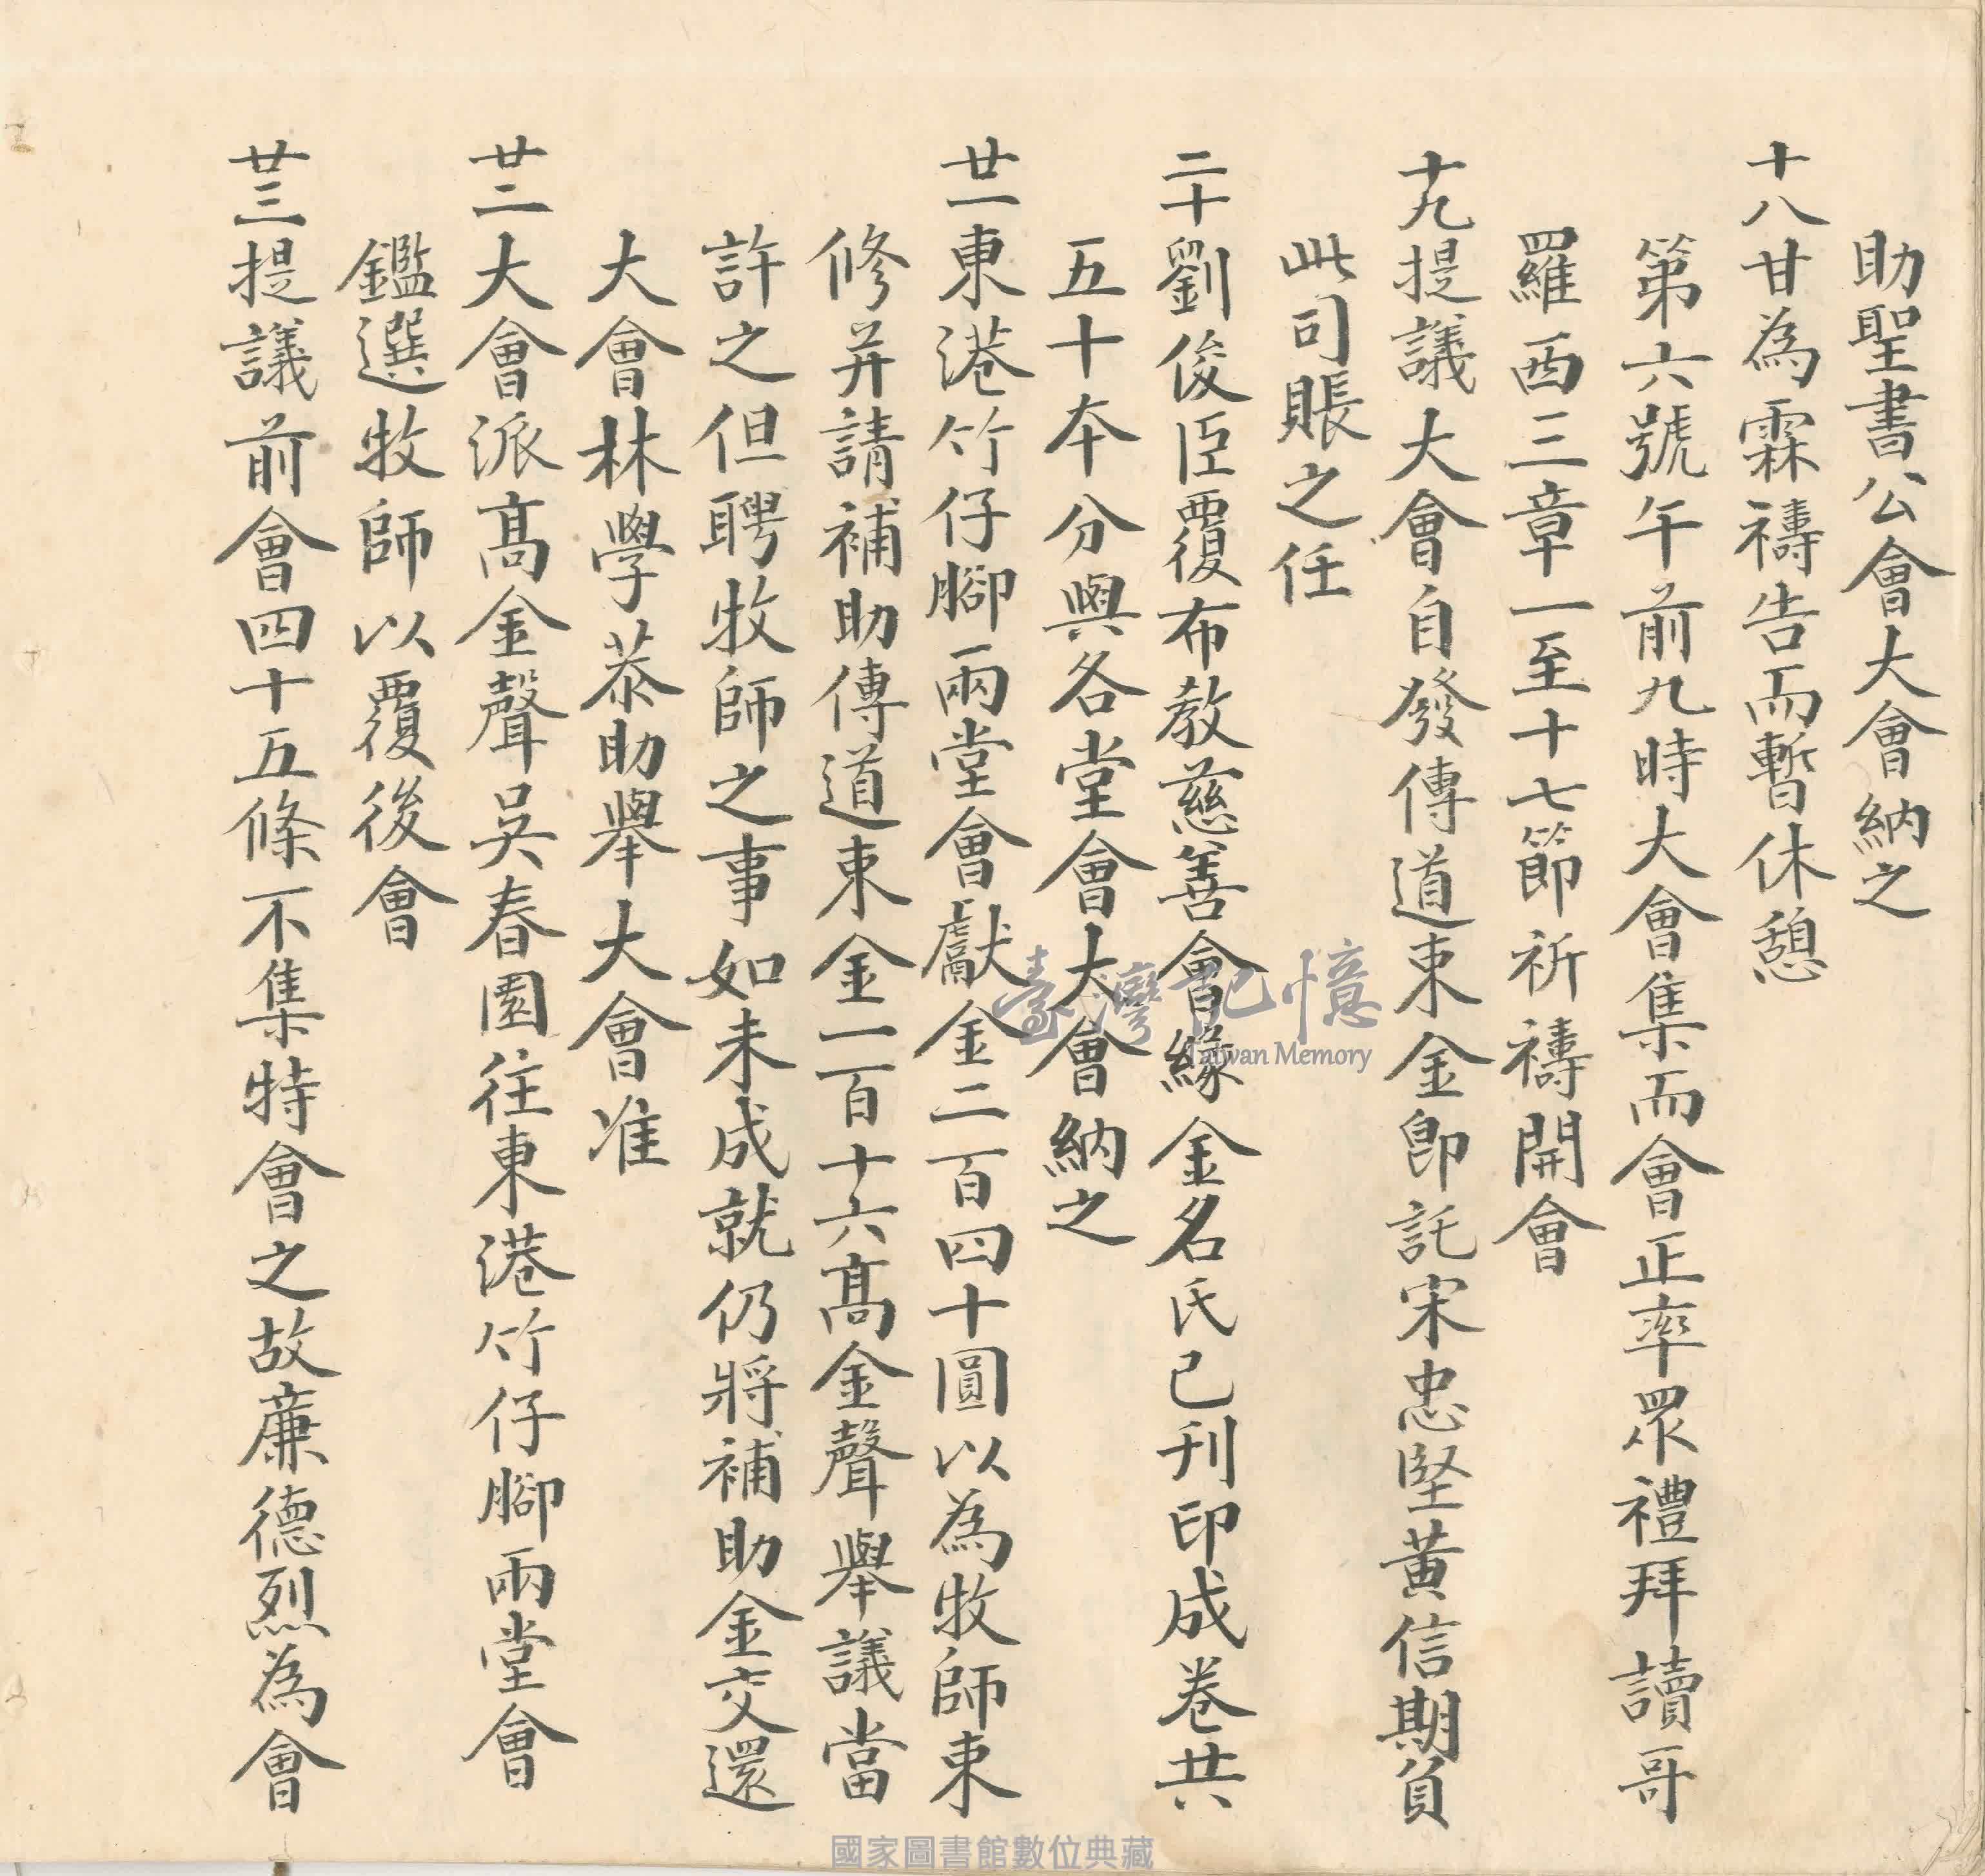 助聖書公會大會納之
十八甘為霖禱告而暫休憩
第六號午前九時大會集而會正率眾禮拜讀哥
羅西三章一至十七節祈禱開會
十九提議大會自發傳道束金即託宋忠堅黃信期負
此司賬之任
二十劉俊臣覆布教慈善會緣金名氏已刊印成卷共
五十本分與各堂會大會納之
廿一東港竹仔腳兩堂會獻金二百四十圓以為牧師束
修并請補助傳道束金一百十六高金聲舉議當
許之但聘牧師之事如未成就仍將補助金交還
大會林學恭助舉大會准
廿二大會派高金聲吳春園往東港竹仔腳兩堂會
鑑選牧師以覆後會
廿三提議前會四十五條不集特會之故廉德烈為會
臺灣記憶
Taiwan Memory
國家圖書館數位典藏